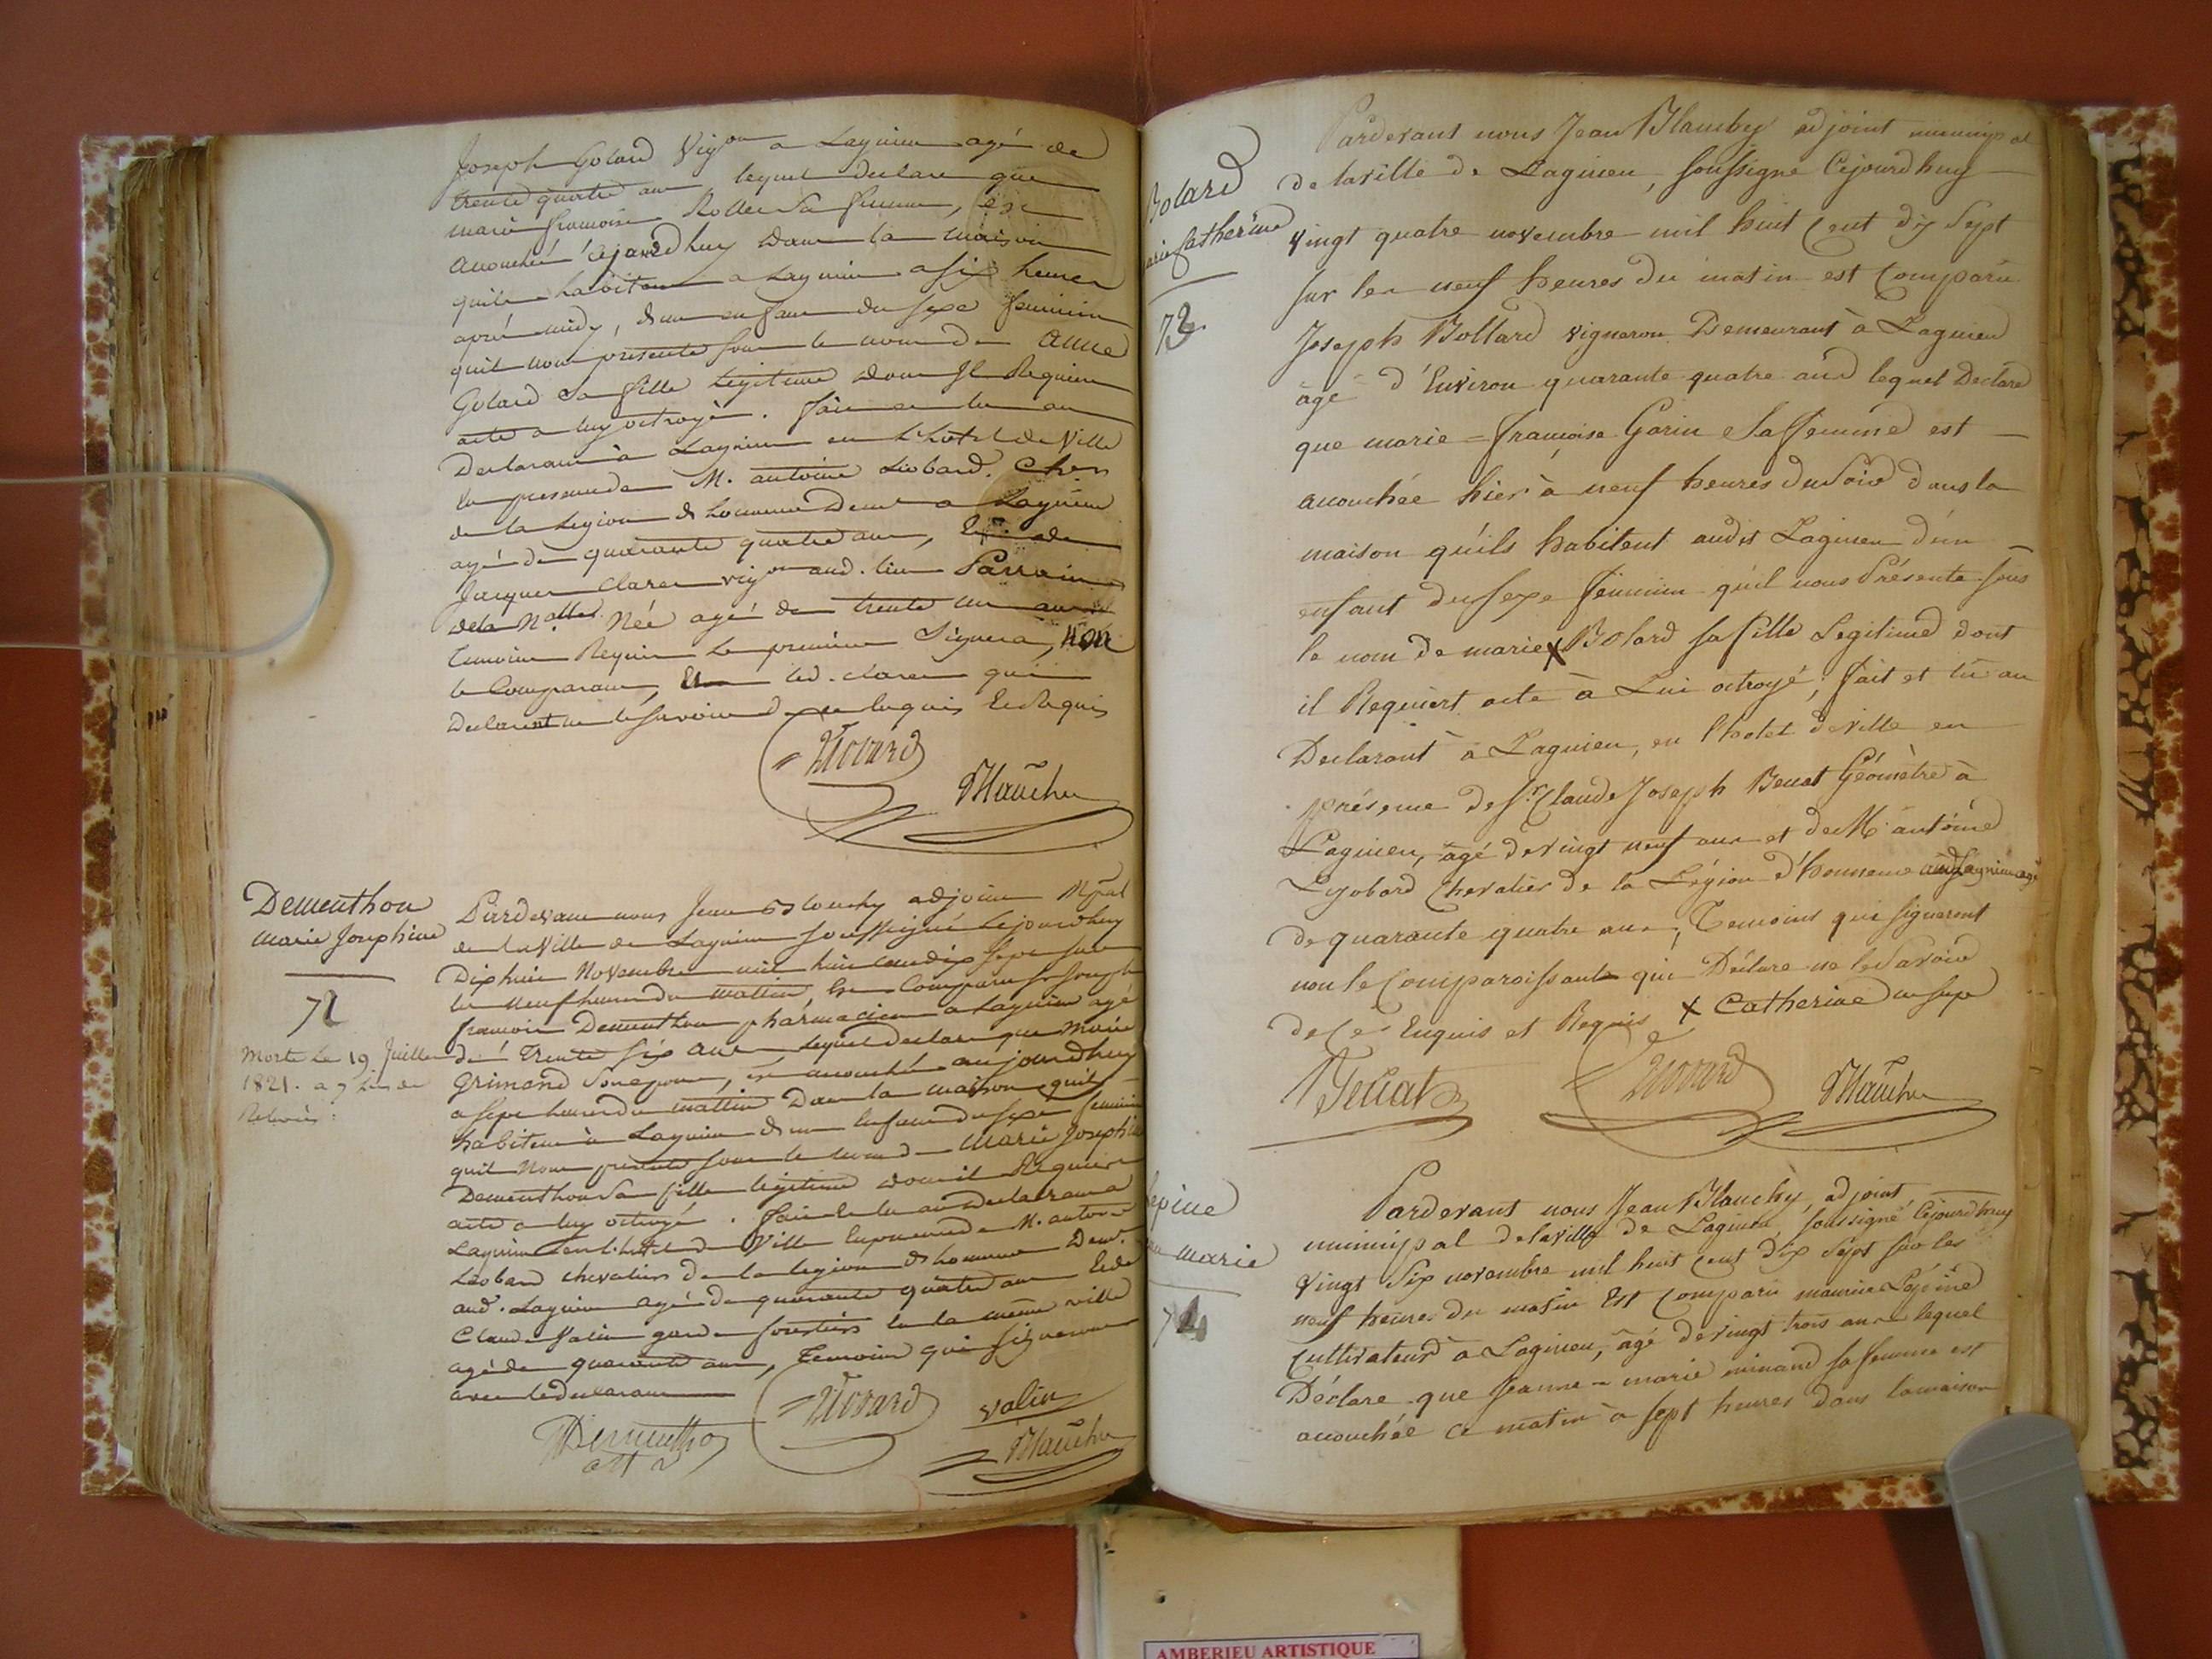 Joseph Golard Vig.on a Lagnieu agé de
trente quatre ans lequel declare que
marie françoise Rollet Sa femme, est
accouchée cejourdhuy dans la maison
quils habitent a Lagnieu a six heures
aprés midy, dun enfant du sexe feminin
quil nous presente sous le nom de Anne
Golard Sa fille legitime dont Il Requiert
acte a luy octroyé. fait et lu au
Declarant à Lagnieu en L'hotel de Ville
en presence de M. antoine Liobard. Cher
de la Legion d honneur Demt a Lagnieu
agé de quarante quatre ans, Et de
Jacques Claret vig.on aud. lieu Parrain
de la N.elle Née agé de trente un ans
temoins Requis Le premier Signera, non
le Comparant, Et led. claret qui
Declarent ne le savoir de ce Enquis Et Requis
Liobard
Blanchy
Dementhon
Marie Josephine
72
Morte Le 19 Juillet
1821. a
Pardevant nous Jean Blanchy adjoint Mpal
de la Ville de Lagnieu soussigné Cejourdhuy
Dix huit Novembre mil huit cent dix sept sur
les neuf heures du mattin, Est Comparu sr Joseph
françois Dementhon pharmacien a Lagnieu agé
de Trente six ans, lequel declare que Marie
Grimand Son epouse, est accouchée aujourdhuy
a sept heures du mattin Dans la maison quils
habitent à Lagnieu d'un Enfant du sexe feminin
quil Nous presente sous le nom de Marie Josephine
Dementhon Sa fille legitime dont il Requiert
acte a luy octroyé. fait et lu au declarant a
Lagnieu en L'hotel de Ville En presence de M. antoine
Liobard chevalier de la legion d honneur Demt.
aud. Lagnieu agé de quarante quatre ans Et de
Claude Valin garde forestier en la même ville
agé de quarante ans, Temoins qui signeront
avec le declarant
Dementhon
Liobard
Valin
Blanchy
Bolard
Marie Catherine
73
Pardevant nous Jean Blanchy adjoint municipal
de la ville de Lagnieu, soussigné Cejourdhuy
vingt quatre novembre mil huit Cent dix Sept
sur les neuf heures du matin est Comparu
Joseph Bollard vigneron Demeurant à Lagnieu
âgé d'Environ quarante quatre ans lequel Declare
que marie = françoise Gorin Sa femme est
accouchée hier à neuf heures du Soir dans la
maison qu'ils habitent audit Lagnieu d'un
enfant du sexe féminin qu'il nous Présente sous
le nom de marie X Bolard sa fille Legitime dont
il Requiert acte à Lui octroyé; fait et lu au
Declarant à Lagnieu, en l'hotel de ville en
présence de Sr. Claude Joseph Benat Géomètre à
Lagnieu, âgé de vingt neuf ans et de Mr antoine
Lyobard Chevalier de la Légion d'honneur aud Lagnieu agé
de quarante quatre ans, Temoins qui signeront
non le Comparoissant qui Déclare ne le Savoir
de Ce Enquis et Requis X Catherine
Benat
Liobard
Blanchy
Lepine
marie
74
Pardevant nous Jean Blanchy, adjoint
municipal de la ville de Lagnieu soussigné Cejourdhuy
vingt Six novembre mil huit cent dix Sept sur les
neuf heures du matin Est Comparu maurice Lépine
Cultivateur à Lagnieu, âgé de vingt trois ans lequel
Déclare que Jeanne - marie minand sa femme est
accouchée ce matin à sept heures dans la maison
AMBERIEU ARTISTIQUE